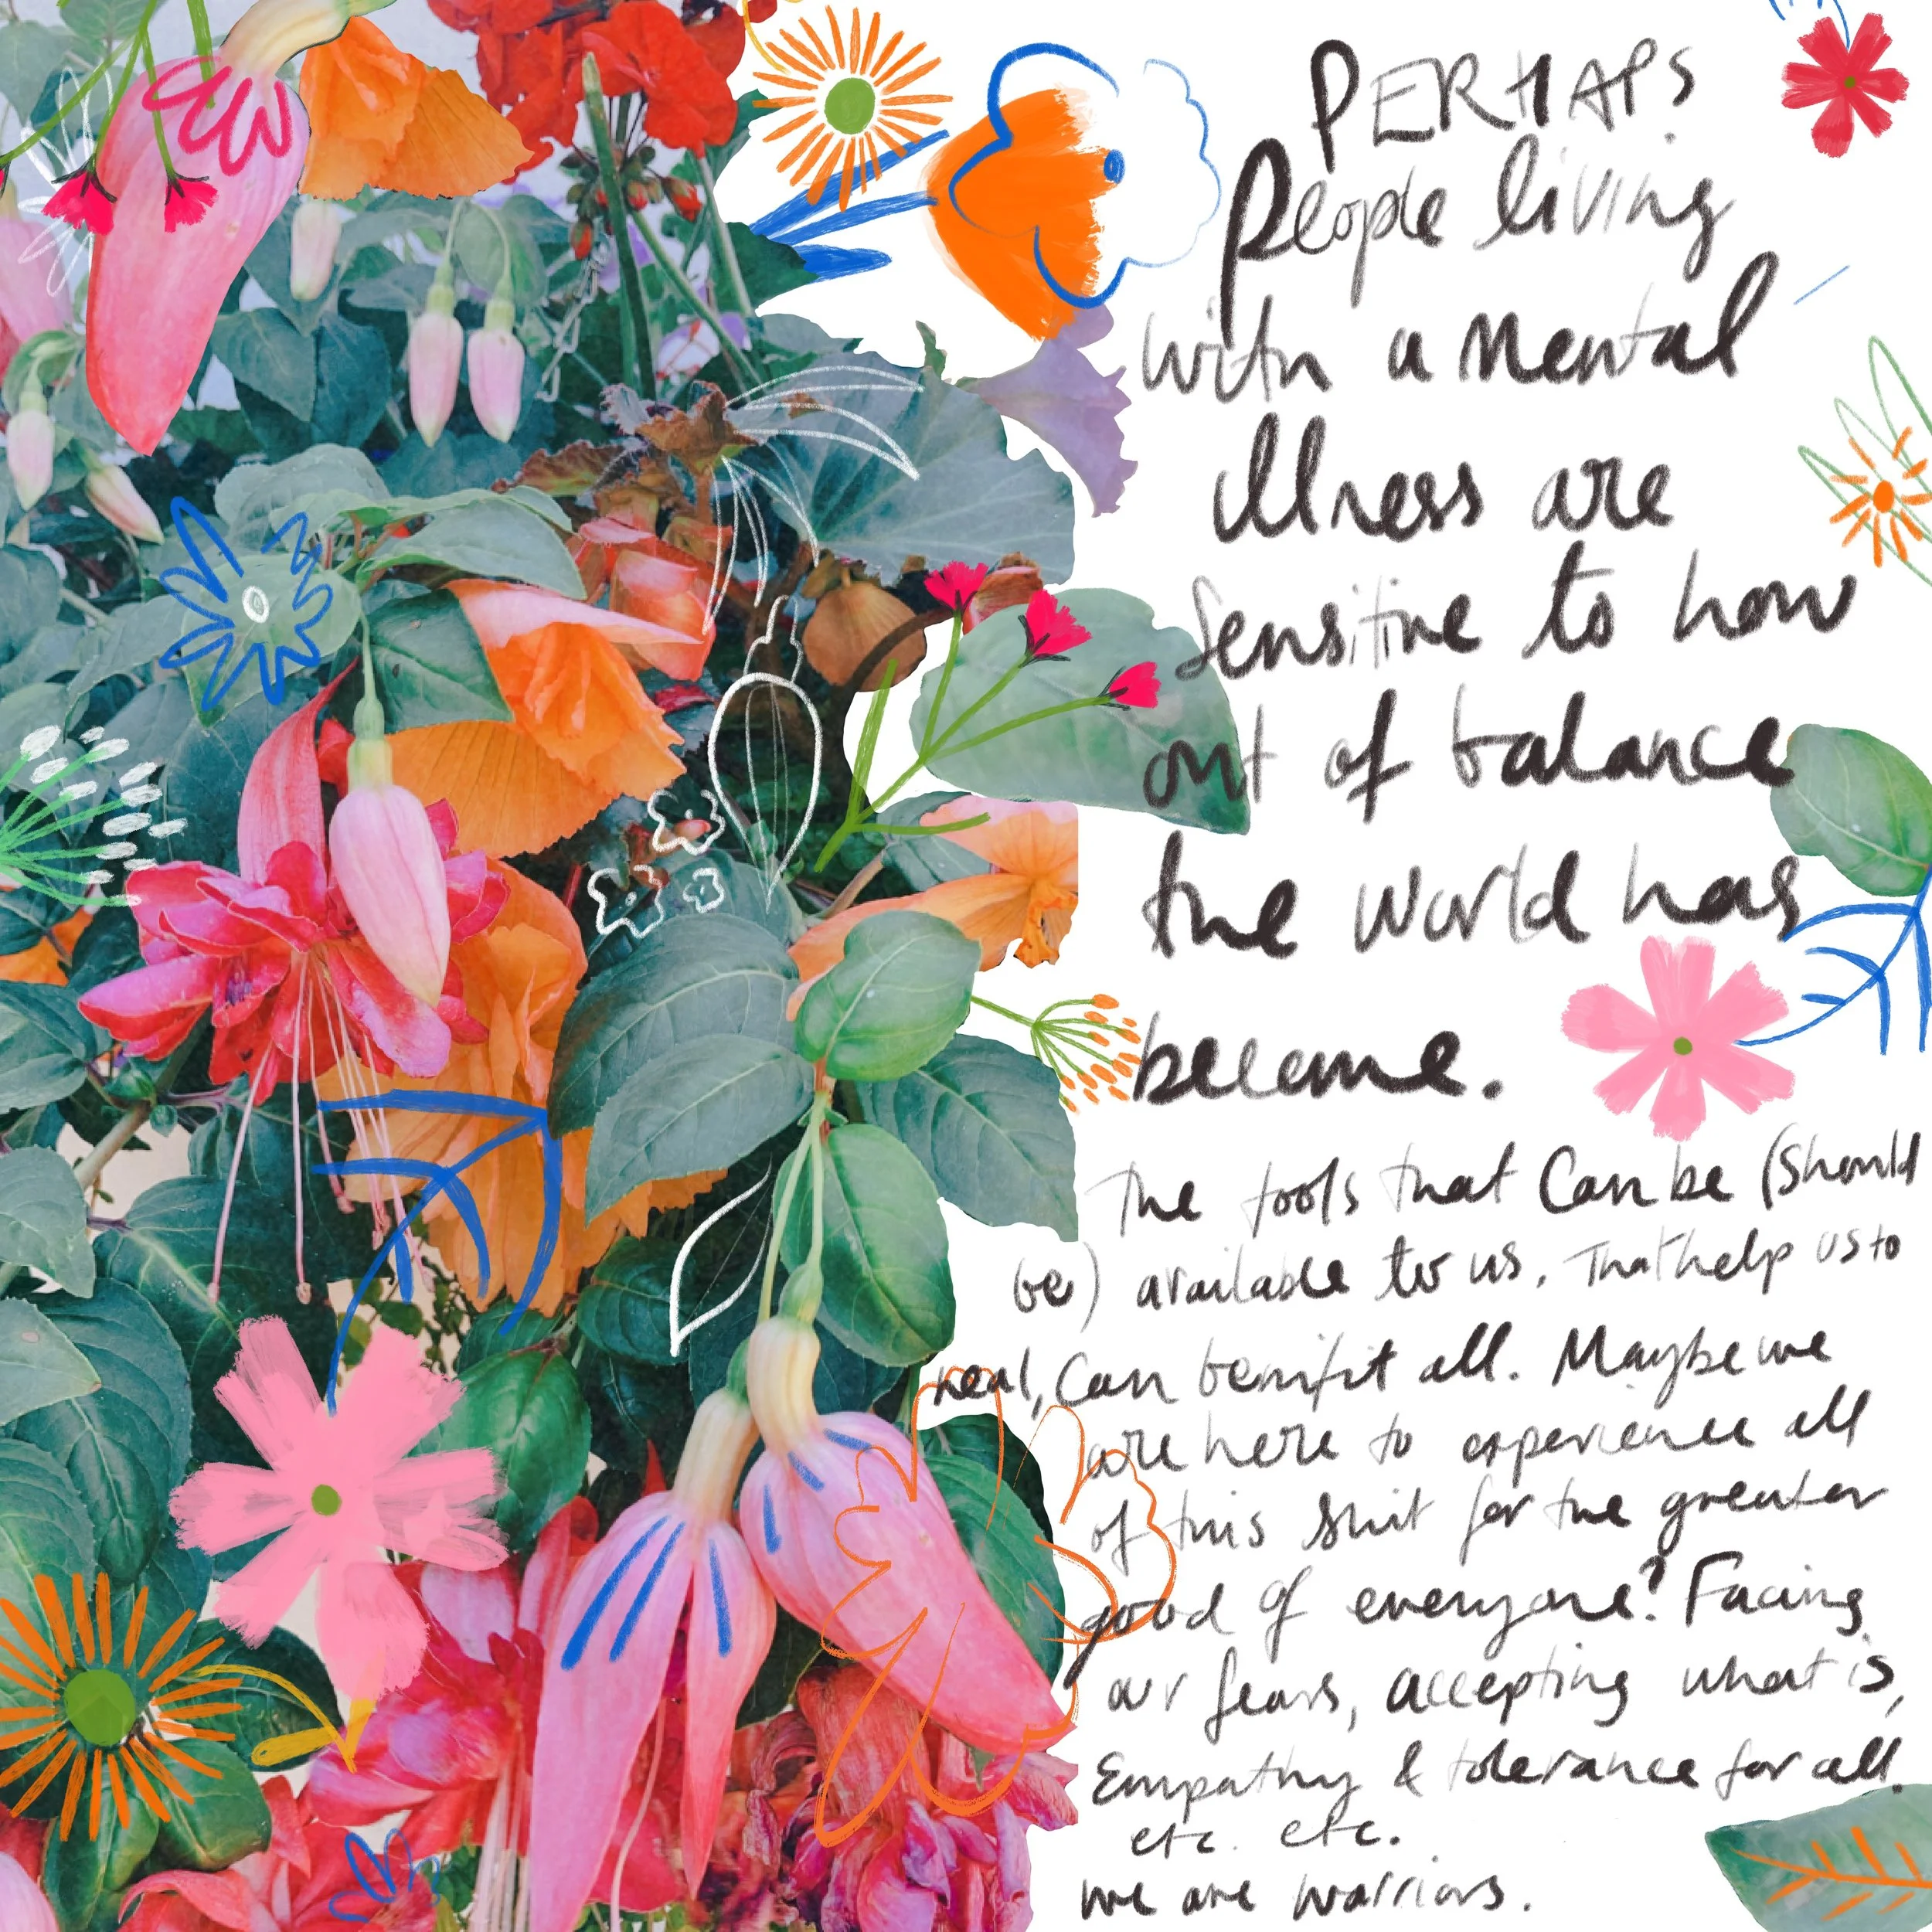 PERHAPS
People living
with a mental
illness are
sensitive to how
out of balance
the world has
become.
The tools that can be (should
be) available to us. That help us to
heal, can benifit all. Maybe we
are here to experience all
of this shit for the greater
good of everyone? Facing
our fears, accepting what is,
Empathy & tolerance for all.
etc. etc.
we are warriors.